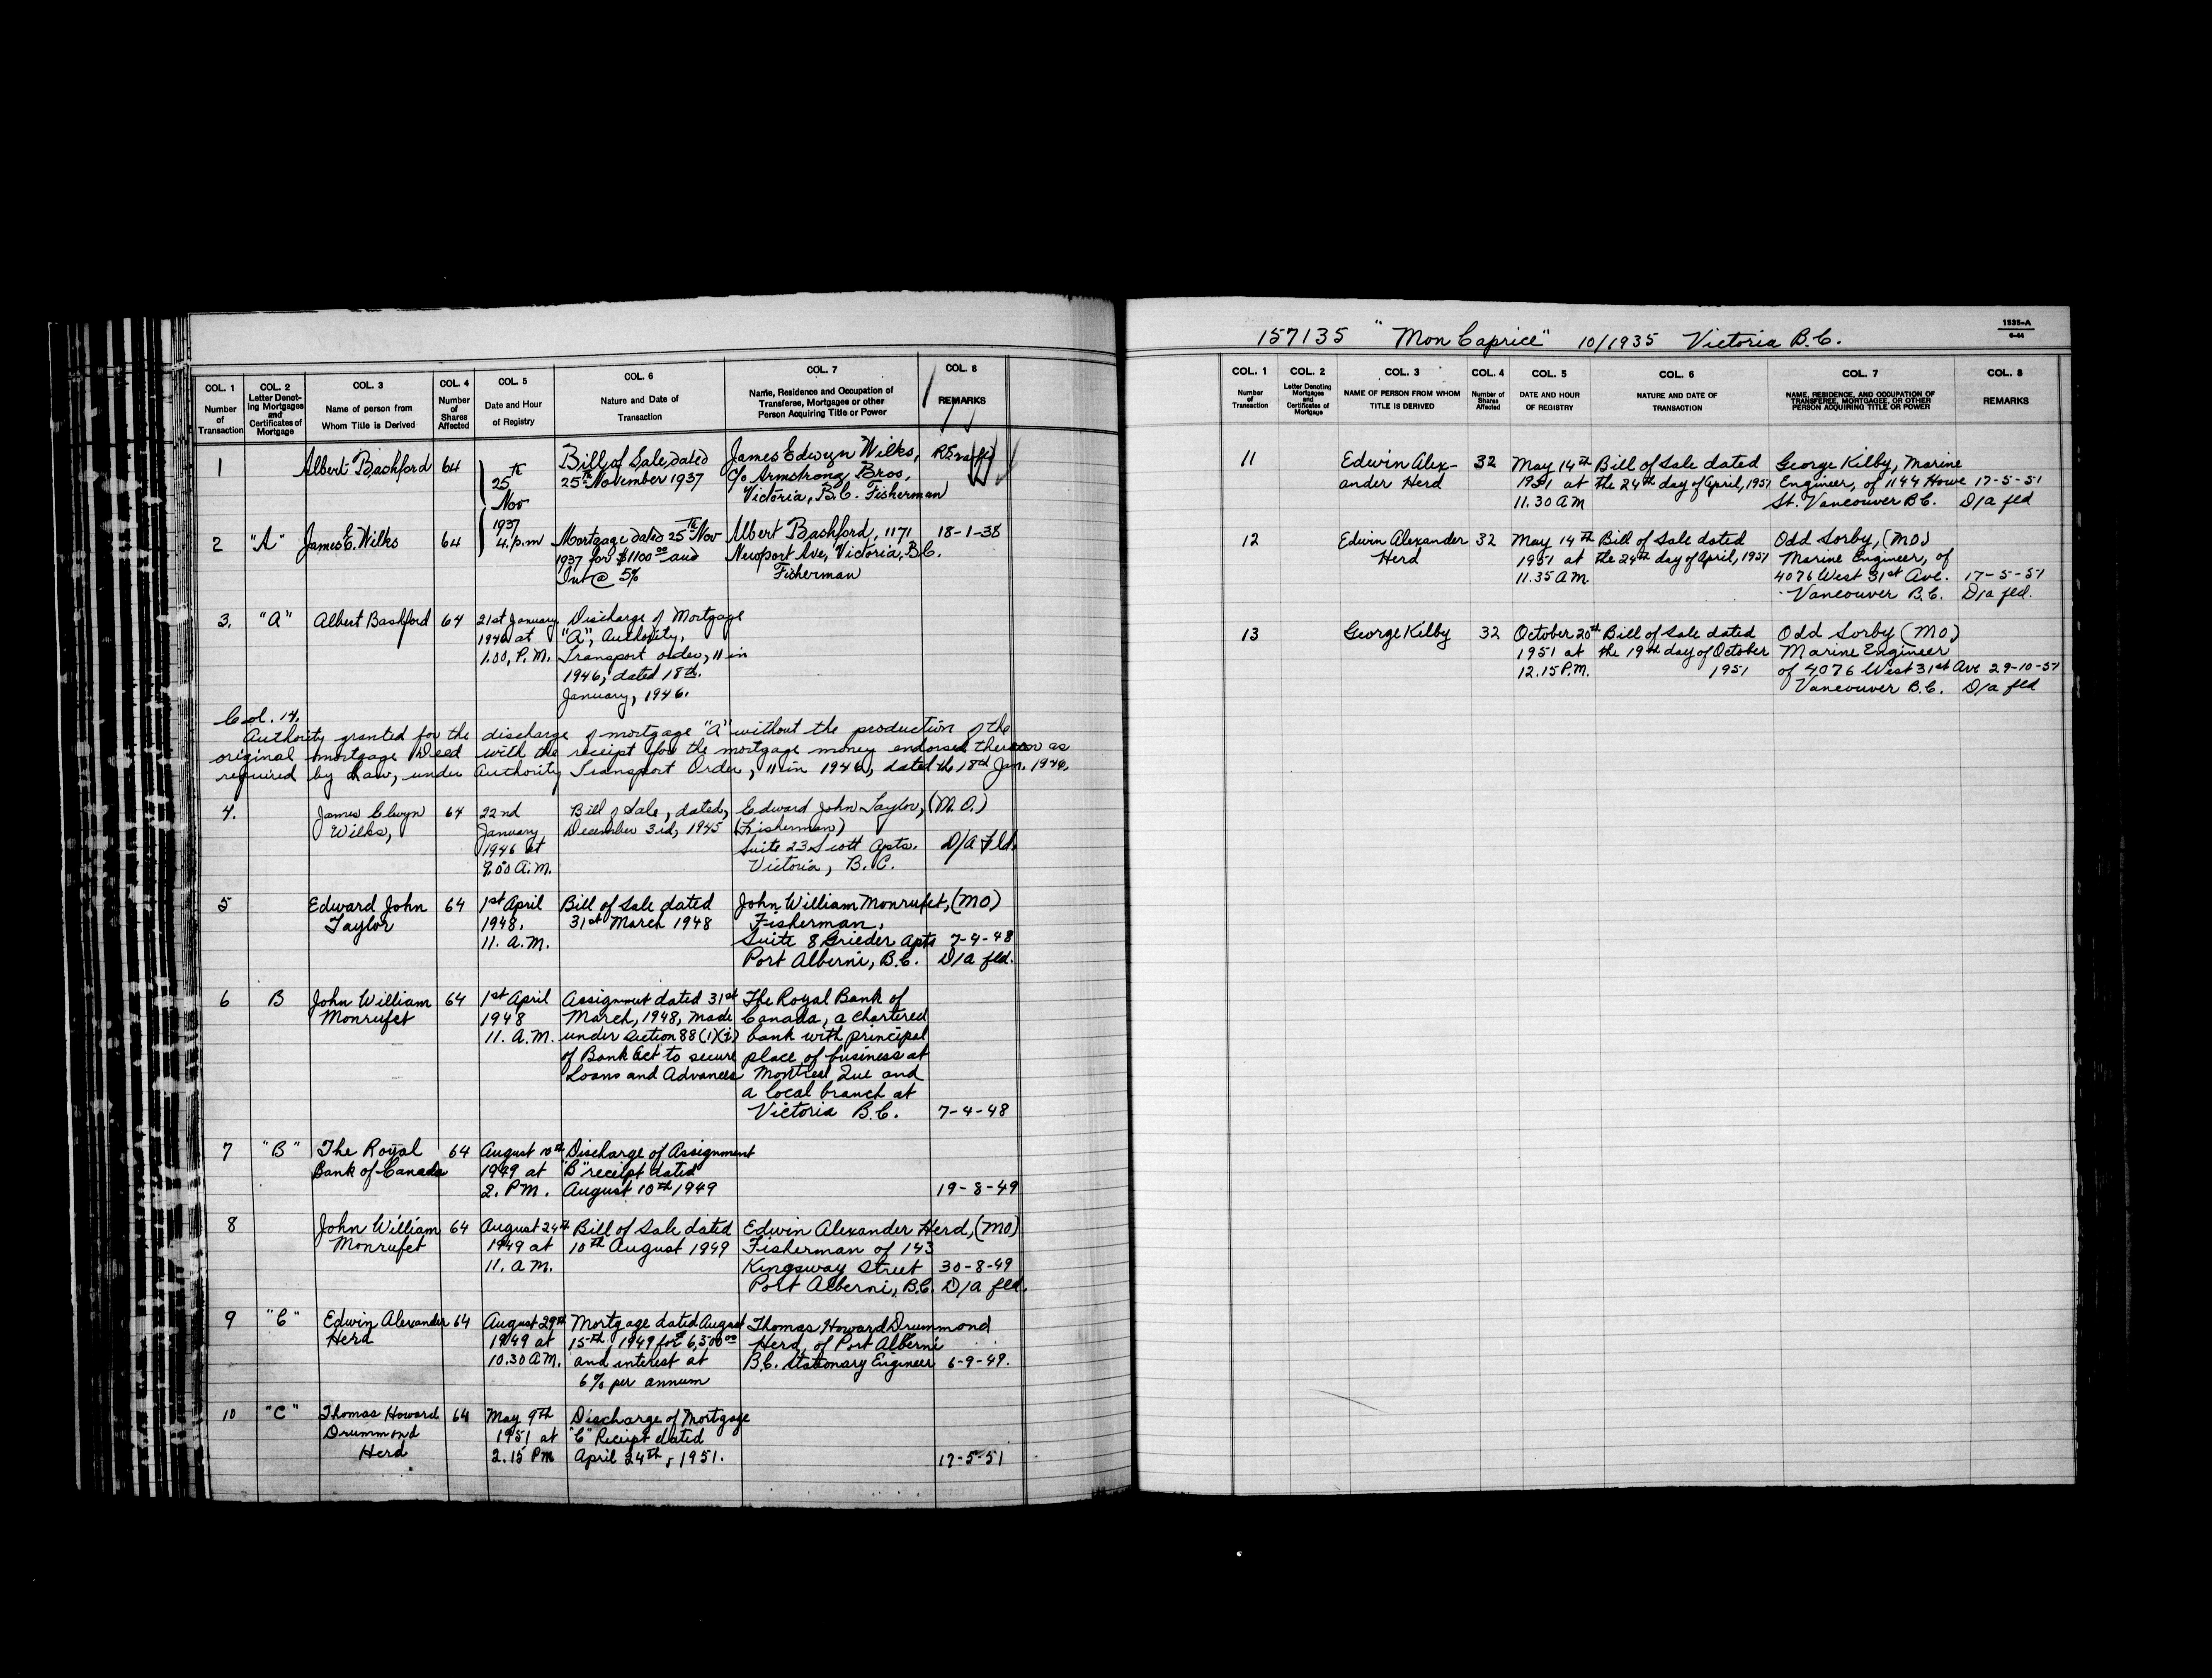 COL. 1 COL. 2 COL. 3 COL. 4 COL. 5 COL. 6 COL. 7 COL. 8
Number of Transaction
Letter Denoting Mortgages and Certificates of Mortgage
Name of person from Whom Title is Derived
Number of Shares Affected
Date and Hour of Registry
Nature and Date of Transaction
Name, Residence and Occupation of Transferee, Mortgagee or other Person Acquiring Title or Power
REMARKS
1 Albert Bashford 64 Bill of Sale, dated James Edwyn Wilks,
25th 25th November 1937 c/o Armstrong Bros,
Nov Victoria, B.C. Fisherman
1937
4. p.m
2 "A" James E. Wilks 64 Mortgage dated 25th Nov Albert Bashford, 1171 18-1-38
1937 for $1100 00 and Newport Ave, Victoria, B.C.
Int @ 5% Fisherman
3. "A" Albert Bashford 64 21st January Discharge of Mortgage
1946 at "A", Authority,
1.00, P.M. Transport order, 11 in
1946, dated 18th.
January, 1946.
Col. 14.
Authority granted for the discharge of mortgage "A" without the production of the
original mortgage Deed with the receipt for the mortgage money endorsed thereon as
required by Law, under Authority Transport Order, 11 in 1946, dated the 18th Jan. 1946.
4. James Elwyn 64 22nd Bill of Sale, dated, Edward John Taylor, (M.O.)
Wilks, January December 3rd, 1945 (Fisherman)
1946 at Suite 23 Scott Apts. D/A Fld.
9.00 A.M. Victoria, B.C.
5 Edward John 64 1st April Bill of Sale dated John William Monrufet, (MO)
Taylor 1948, 31st March 1948 Fisherman,
11. A.M. Suite 8 Grieder Apts 7-4-48
Port Alberni, B.C. D/a fld.
6 B John William 64 1st April Assignment dated 31st The Royal Bank of
Monrufet 1948 March, 1948, made Canada, a chartered
11. A.M. under Section 88(1)(i) bank with principal
of Bank Act to secure place of business at
Loans and Advances Montreal Que and
a local branch at
Victoria B.C. 7-4-48
7 "B" The Royal 64 August 10th Discharge of Assignment
Bank of Canada 1949 at "B" receipt dated
2. P.M. August 10th 1949 19-8-49
8 John William 64 August 24th Bill of Sale dated Edwin Alexander Herd, (MO)
Monrufet 1949 at 10th August 1949 Fisherman of 143
11. A.M. Kingsway Street 30-8-49
Port Alberni, B.C. D/a fld.
9 "C" Edwin Alexander 64 August 29th Mortgage dated August Thomas Howard Drummond
Herd 1949 at 15th, 1949 for $6,500 00 Herd, of Port Alberni
10.30 A.M. and interest at B.C. Stationary Engineer 6-9-49.
6% per annum
10 "C" Thomas Howard 64 May 9th Discharge of Mortgage
Drummond 1951 at "C" Receipt dated
Herd 2.15 PM April 24th, 1951. 17-5-51
157135 "Mon Caprice" 10/1935 Victoria B.C.
1335-A
6-44
COL. 1 COL. 2 COL. 3 COL. 4 COL. 5 COL. 6 COL. 7 COL. 8
Number of Transaction
Letter Denoting Mortgages and Certificates of Mortgage
NAME OF PERSON FROM WHOM TITLE IS DERIVED
Number of Shares Affected
DATE AND HOUR OF REGISTRY
NATURE AND DATE OF TRANSACTION
NAME, RESIDENCE, AND OCCUPATION OF TRANSFEREE, MORTGAGEE, OR OTHER PERSON ACQUIRING TITLE OR POWER
REMARKS
11 Edwin Alex- 32 May 14th Bill of Sale dated George Kilby, Marine
ander Herd 1951 at the 24th day of April, 1951 Engineer, of 1144 Howe 17-5-51
11.30 AM St. Vancouver B.C. D/a fld
12 Edwin Alexander 32 May 14th Bill of Sale dated Odd Sorby, (MO)
Herd 1951 at the 24th day of April, 1951 Marine Engineer, of
11.35 AM. 4076 West 31st Ave. 17-5-51
Vancouver B.C. D/a fld.
13 George Kilby 32 October 20th Bill of Sale dated Odd Sorby (MO)
1951 at the 19th day of October Marine Engineer
12.15 P.M. 1951 of 4076 West 31st Ave 29-10-51
Vancouver B.C. D/a fld